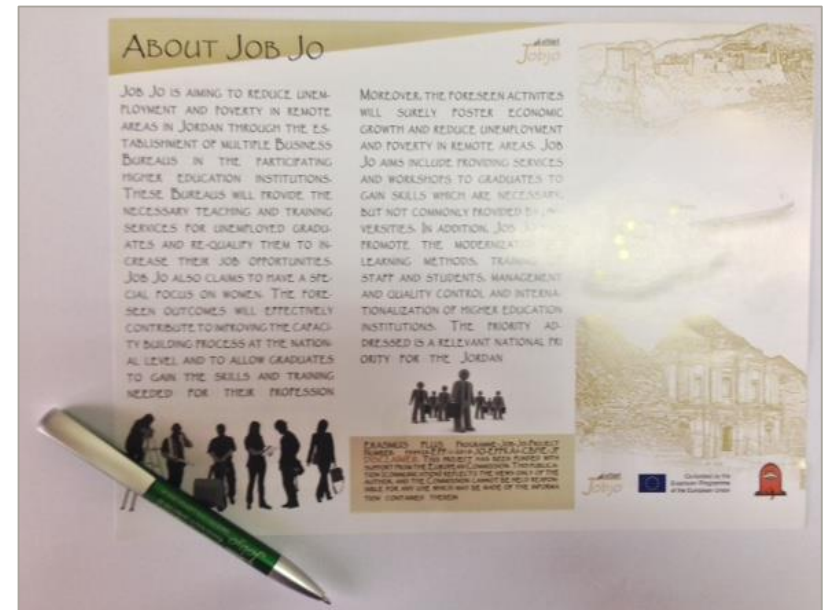 ABOUT JOB JO
JOB JO IS AIMING TO REDUCE UNEM-
PLOYMENT AND POVERTY IN REMOTE
AREAS IN JORDAN THROUGH THE ES-
TABLISHMENT OF MULTIPLE BUSINESS
BUREAUS IN THE PARTICIPATING
HIGHER EDUCATION INSTITUTIONS.
THESE BUREAUS WILL PROVIDE THE
NECESSARY TEACHING AND TRAINING
SERVICES FOR UNEMPLOYED GRADU-
ATES AND RE-QUALIFY THEM TO IN-
CREASE THEIR JOB OPPORTUNITIES.
JOB JO ALSO CLAIMS TO HAVE A SPE-
CIAL FOCUS ON WOMEN. THE FORE-
SEEN OUTCOMES WILL EFFECTIVELY
CONTRIBUTE TO IMPROVING THE CAPACI-
TY BUILDING PROCESS AT THE NATION-
AL LEVEL AND TO ALLOW GRADUATES
TO GAIN THE SKILLS AND TRAINING
NEEDED FOR THEIR PROFESSION
Jobjo
MOREOVER, THE FORESEEN ACTIVITIES
WILL SURELY FOSTER ECONOMIC
GROWTH AND REDUCE UNEMPLOYMENT
AND POVERTY IN REMOTE AREAS. JOB
JO AIMS INCLUDE PROVIDING SERVICES
AND WORKSHOPS TO GRADUATES TO
GAIN SKILLS WHICH ARE NECESSARY,
BUT NOT COMMONLY PROVIDED
VERSITIES. IN ADDITION, JOB
PROMOTE THE
LEARNING METHODS,
STAFF AND STUDENTS, MANAGEMENT
AND QUALITY CONTROL AND INTERNA-
TIONALIZATION OF HIGHER EDUCATION
INSTITUTIONS. THE PRIORITY AD-
DRESSED IS A RELEVANT NATIONAL PRI
ORITY FOR THE JORDAN
ERASMUS PLUS PROGRAMME-JOB-JO-PROJECT
NUMBER
DISCLAIMER: THIS PROJECT HAS BEEN FUNDED WITH
SUPPORT FROM THE EUROPEAN COMMISSION. THIS PUBLICA-
TION [COMMUNICATION] REFLECTS THE VIEWS ONLY OF THE
AUTHOR, AND THE COMMISSION CANNOT BE HELD RESPON-
SIBLE FOR ANY USE WHICH MAY BE MADE OF THE INFORMA
TION CONTAINED THEREIN
Jobjo
Co-funded by the
Erasmus+ Programme
of the European Union